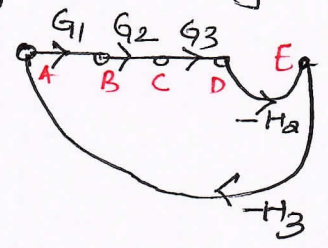 G1 G2 G3
A B C D E
-H2
-H3